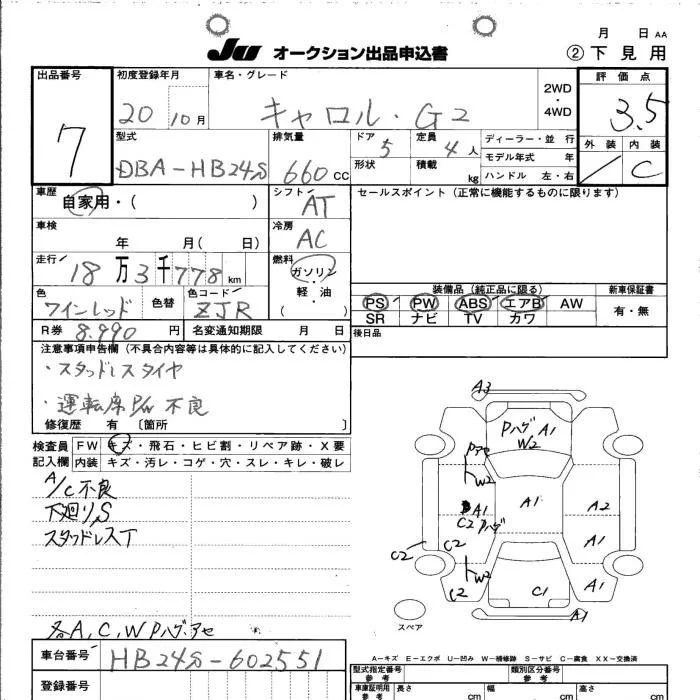 月 日 AA
JU オークション出品申込書 ② 下見用
出品番号 7
初度登録年月 20 10月
車名・グレード キャロル・G2
2WD・4WD
評価点 3.5
型式 DBA-HB24S
排気量 660 CC
ドア 5
定員 4 人
形状
積載 kg
ディーラー・並 行
モデル年式 年
ハンドル 左・右
外装 /
内装 C
車歴 自家用・( )
シフト AT
セールスポイント (正常に機能するものに限ります)
車検 年 月( 日)
冷房 AC
走行 18万3千778km
燃料 ガソリン・軽・油・( )
色 ワインレッド
色替
色コード ZJR
装備品 (純正品に限る)
新車保証書
PS PW ABS エアB AW
SR ナビ TV カワ
有・無
R券 8.990 円
名変通知期限 月 日
後日品
注意事項申告欄 (不具合内容等は具体的に記入してください)
・スタッドレスタイヤ
・運転席P/W 不良
修復歴 有 〔箇所 〕
検査員記入欄
FW キズ・飛石・ヒビ割・リペア跡・X要
内装 キズ・汚レ・コゲ・穴・スレ・キレ・破レ
A/C不良
下廻りS
スタッドレスT
各A,C,W Pハゲ.アセ
A3
Pハゲ A1
W2
Pアセ
W2
A1
A1
A2
C2 Pハゲ
C2
C2
A1
W2
C2
C1
A1
A1
スペア
A-キズ E-エクボ U-凹み W-補修跡 S-サビ C-腐食 XX-交換済
車台番号 HB24S-602551
登録番号
型式指定番号 参考
類別区分番号 参考
車庫証明用 参考
長さ cm
幅 cm
高さ cm